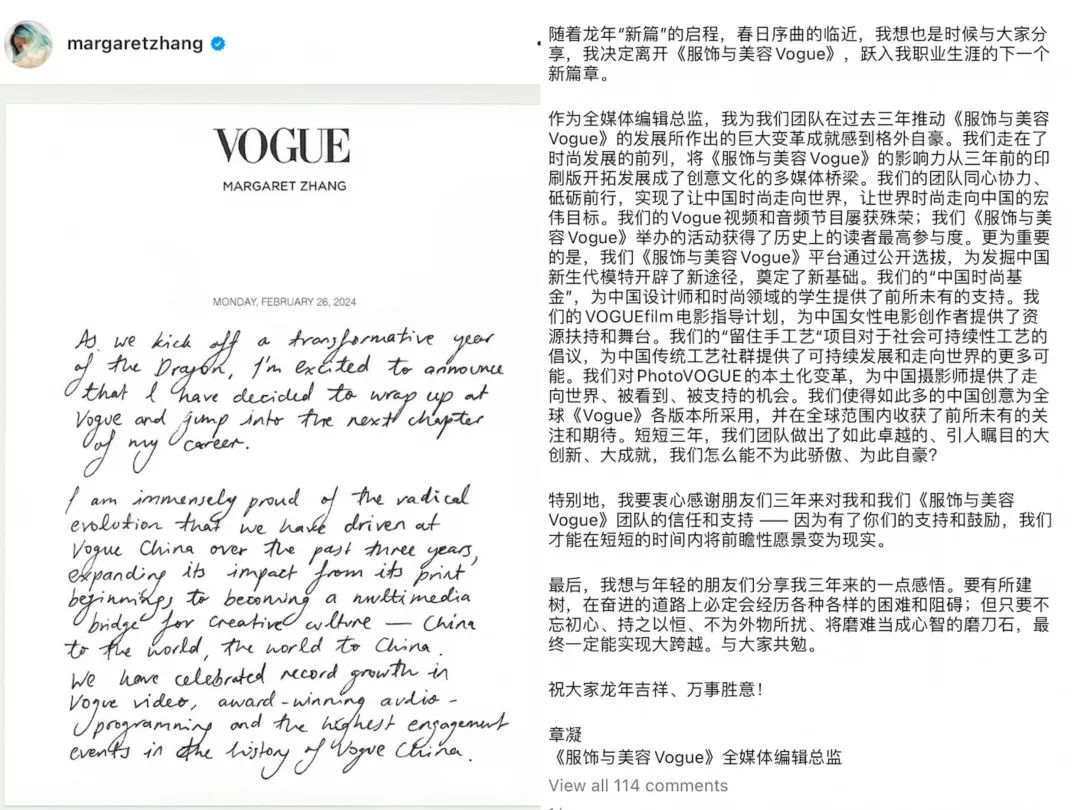 margaretzhang
VOGUE
MARGARET ZHANG
MONDAY, FEBRUARY 26, 2024
As we kick off a transformative year
of the Dragon, I'm excited to announce
that I have decided to wrap up at
Vogue and jump into the next chapter
of my career.
I am immensely proud of the radical
evolution that we have driven at
Vogue China over the past three years,
expanding its impact from its print
beginnings to becoming a multimedia
bridge for creative culture — China
to the world, the world to China.
We have celebrated record growth in
Vogue video, award-winning audio-
programming and the highest engagement
events in the history of Vogue China.
随着龙年“新篇”的启程，春日序曲的临近，我想也是时候与大家分
享，我决定离开《服饰与美容Vogue》，跃入我职业生涯的下一个
新篇章。
作为全媒体编辑总监，我为我们团队在过去三年推动《服饰与美容
Vogue》的发展所作出的巨大变革成就感到格外自豪。我们走在了
时尚发展的前列，将《服饰与美容Vogue》的影响力从三年前的印
刷版开拓发展成了创意文化的多媒体桥梁。我们的团队同心协力、
砥砺前行，实现了让中国时尚走向世界，让世界时尚走向中国的宏
伟目标。我们的Vogue视频和音频节目屡获殊荣；我们《服饰与美
容Vogue》举办的活动获得了历史上的读者最高参与度。更为重要
的是，我们《服饰与美容Vogue》平台通过公开选拔，为发掘中国
新生代模特开辟了新途径，奠定了新基础。我们的“中国时尚基
金”，为中国设计师和时尚领域的学生提供了前所未有的支持。我
们的VOGUEfilm电影指导计划，为中国女性电影创作者提供了资
源扶持和舞台。我们的“留住手工艺”项目对于社会可持续性工艺的
倡议，为中国传统工艺社群提供了可持续发展和走向世界的更多可
能。我们对PhotoVOGUE的本土化变革，为中国摄影师提供了走
向世界、被看到、被支持的机会。我们使得如此多的中国创意为全
球《Vogue》各版本所采用，并在全球范围内收获了前所未有的关
注和期待。短短三年，我们团队做出了如此卓越的、引人瞩目的大
创新、大成就，我们怎么能不为此骄傲、为此自豪？
特别地，我要衷心感谢朋友们三年来对我和我们《服饰与美容
Vogue》团队的信任和支持 —— 因为有了你们的支持和鼓励，我们
才能在短短的时间内将前瞻性愿景变为现实。
最后，我想与年轻的朋友们分享我三年来的一点感悟。要有所建
树，在奋进的道路上必定会经历各种各样的困难和阻碍；但只要不
忘初心、持之以恒、不为外物所扰、将磨难当成心智的磨刀石，最
终一定能实现大跨越。与大家共勉。
祝大家龙年吉祥、万事胜意！
章凝
《服饰与美容Vogue》全媒体编辑总监
View all 114 comments